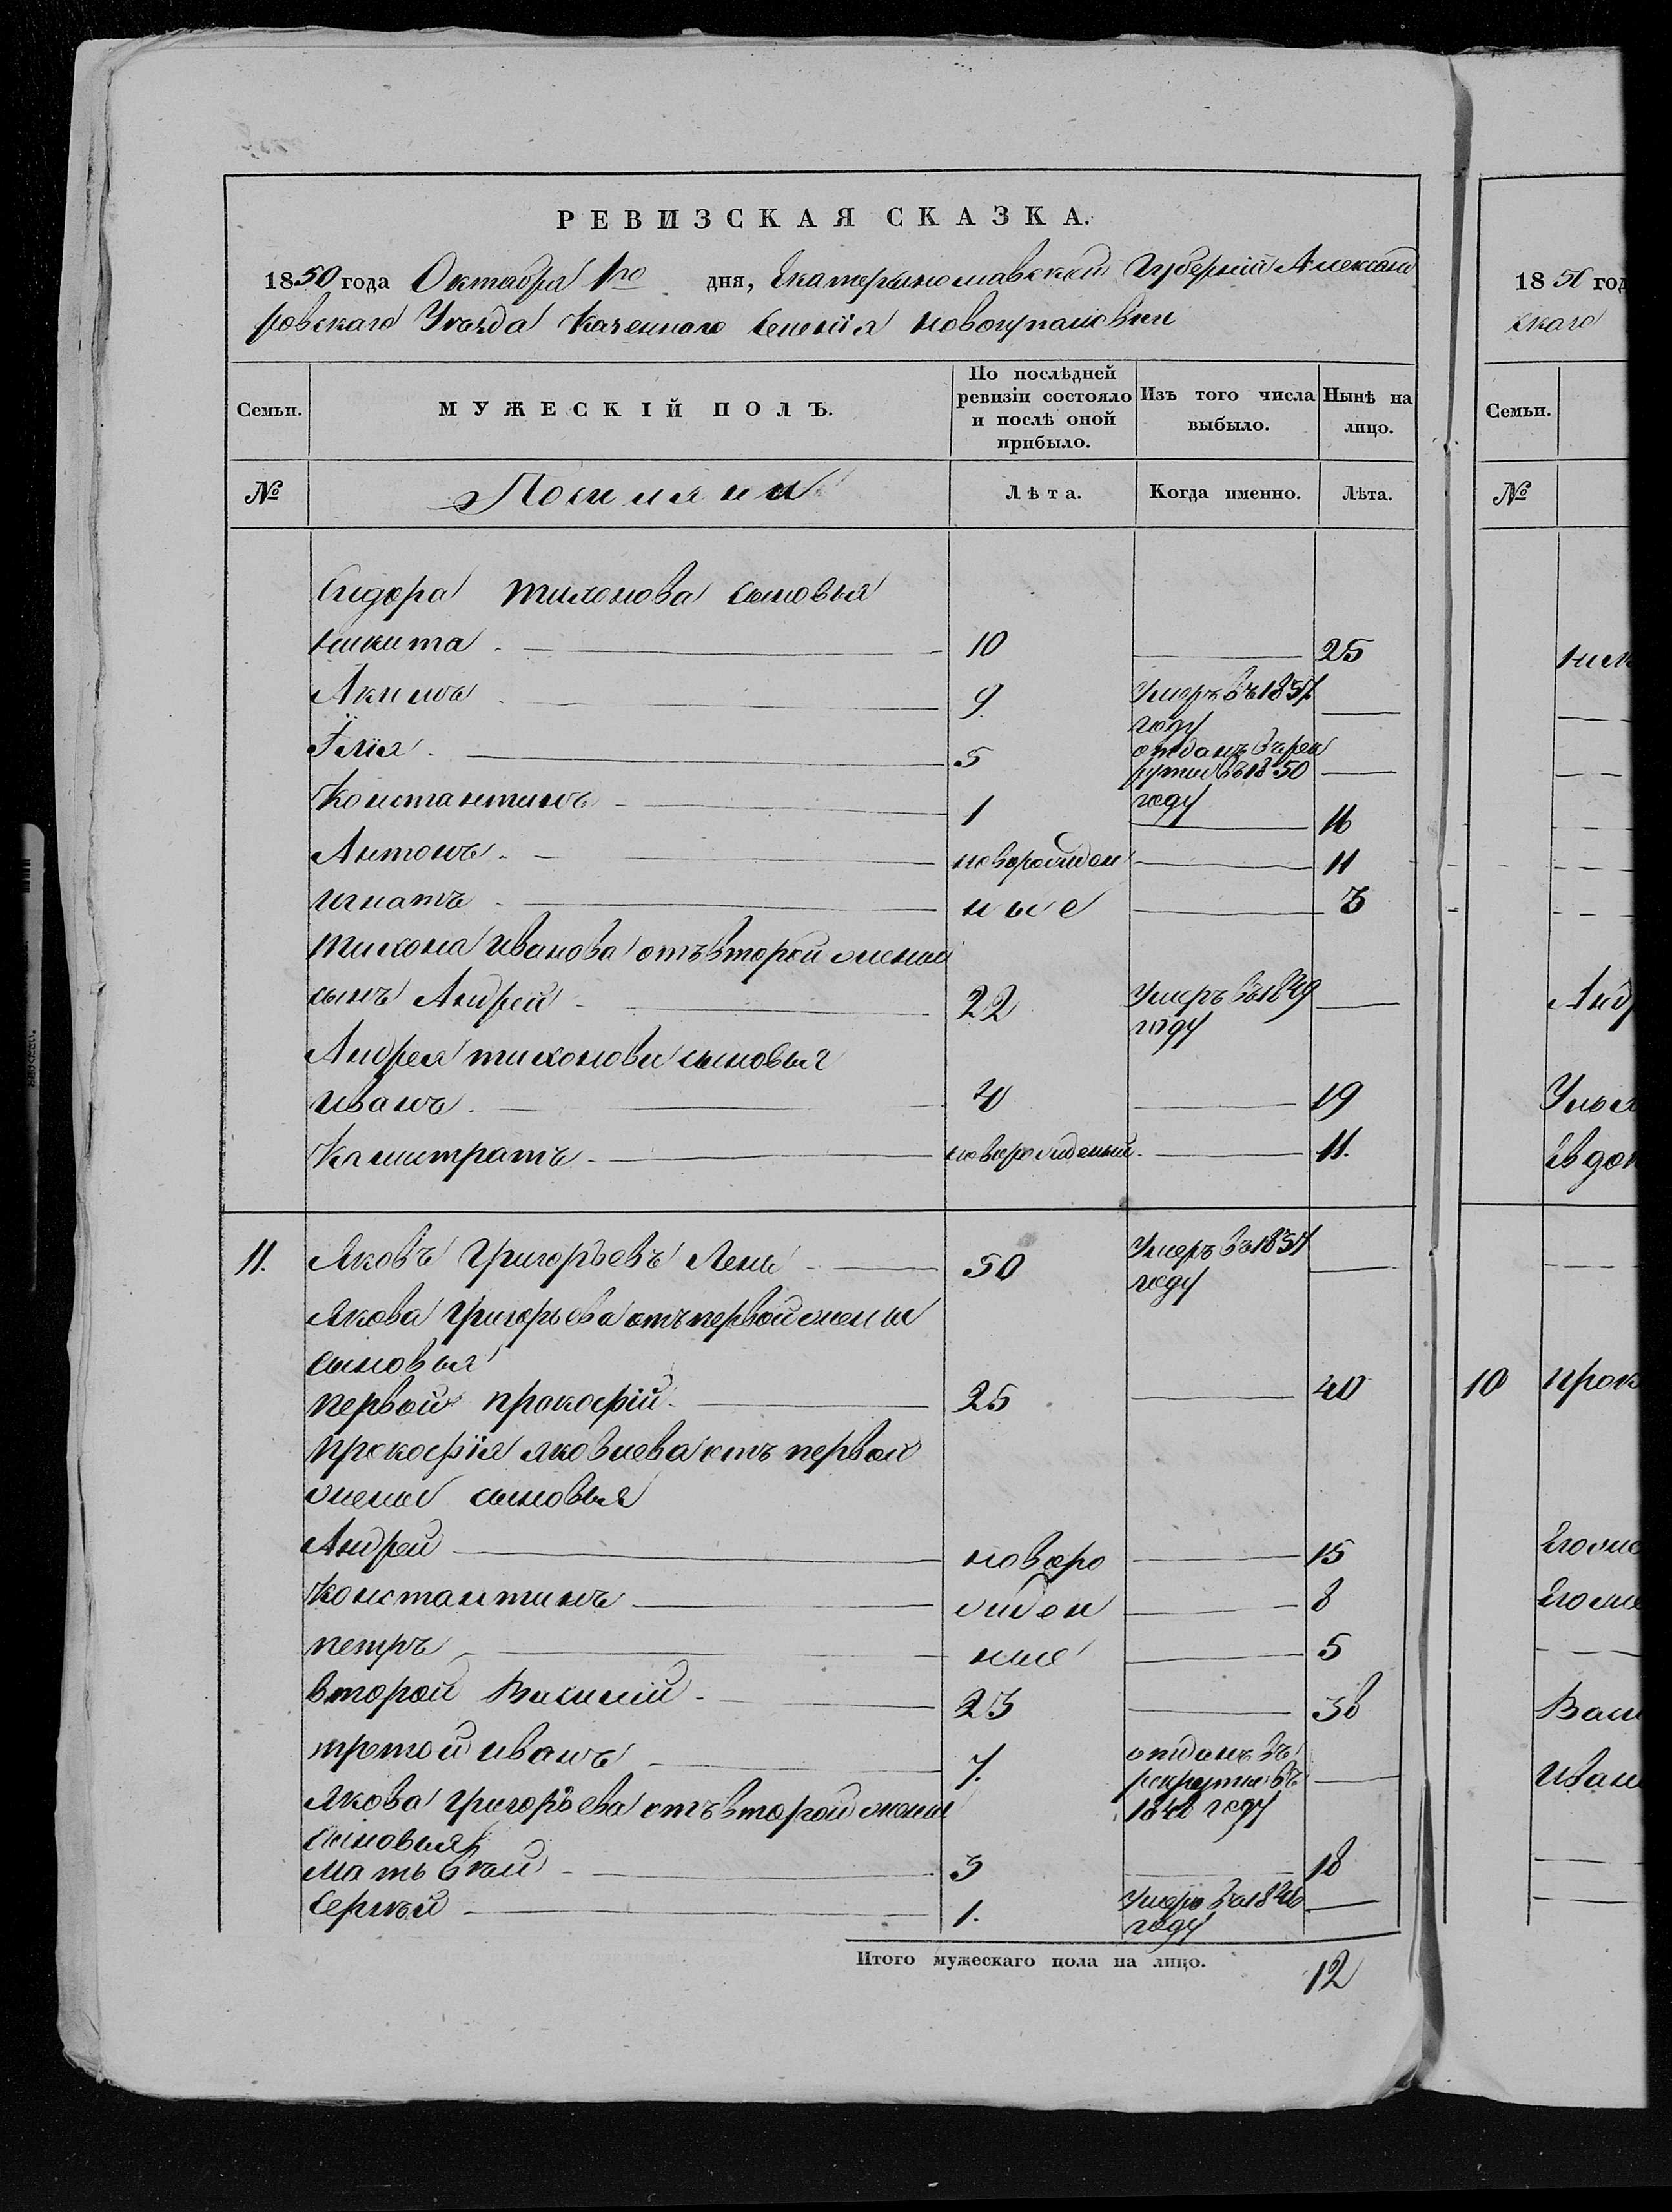 РЕВИЗСКАЯ СКАЗКА.
1850 года Октября 1го дня, Екатеринославской Губернии Александ
ровскаго Уезда Казенного Селения Новогупаловки
Семьи. МУЖЕСКІЙ ПОЛЪ. По послѣдней ревизіи состояло и послѣ оной прибыло. Изъ того числа выбыло. Нынѣ на лицо.
№ Поселяни Лѣта. Когда именно. Лѣта.
Сидора Тихонова сыновья
Никита 10 25
Акимъ 9. умеръ въ 1837 году
Ілія 5 отданъ в рекруты въ 1850 году
Константинъ 1 16
Антонъ новорожден 11
Игнатъ ные 3
Тихона Иванова отъ второй жены
сынъ Андрей 22 умеръ въ 1849 году
Андрея Тихонова сыновья
Иванъ 4 19
Калистратъ новорожденный 11.
11. Яковъ Григорьевъ Лень 50 умеръ въ 1837 году
Якова Григорьева отъ первой жены
сыновья
первой Прокофій 25 40
Прокофія Яковлева отъ первой
жены сыновья
Андрей новоро 15
Константинъ жден 8
Петръ ные 5
второй Василий 23 38
третой Иванъ 7. отданъ въ рекруты въ 1840 году
Якова Григорьева отъ второй жены
сыновья
Матьвѣй 3 18
Сергѣй 1. умеръ въ 1846 году
Итого мужескаго пола на лицо. 12
1850 год
скаго
Семьи.
№
Ник
Анд
Улья
Евдок
10 Прок
Егоже
Егоже
Васи
Иван